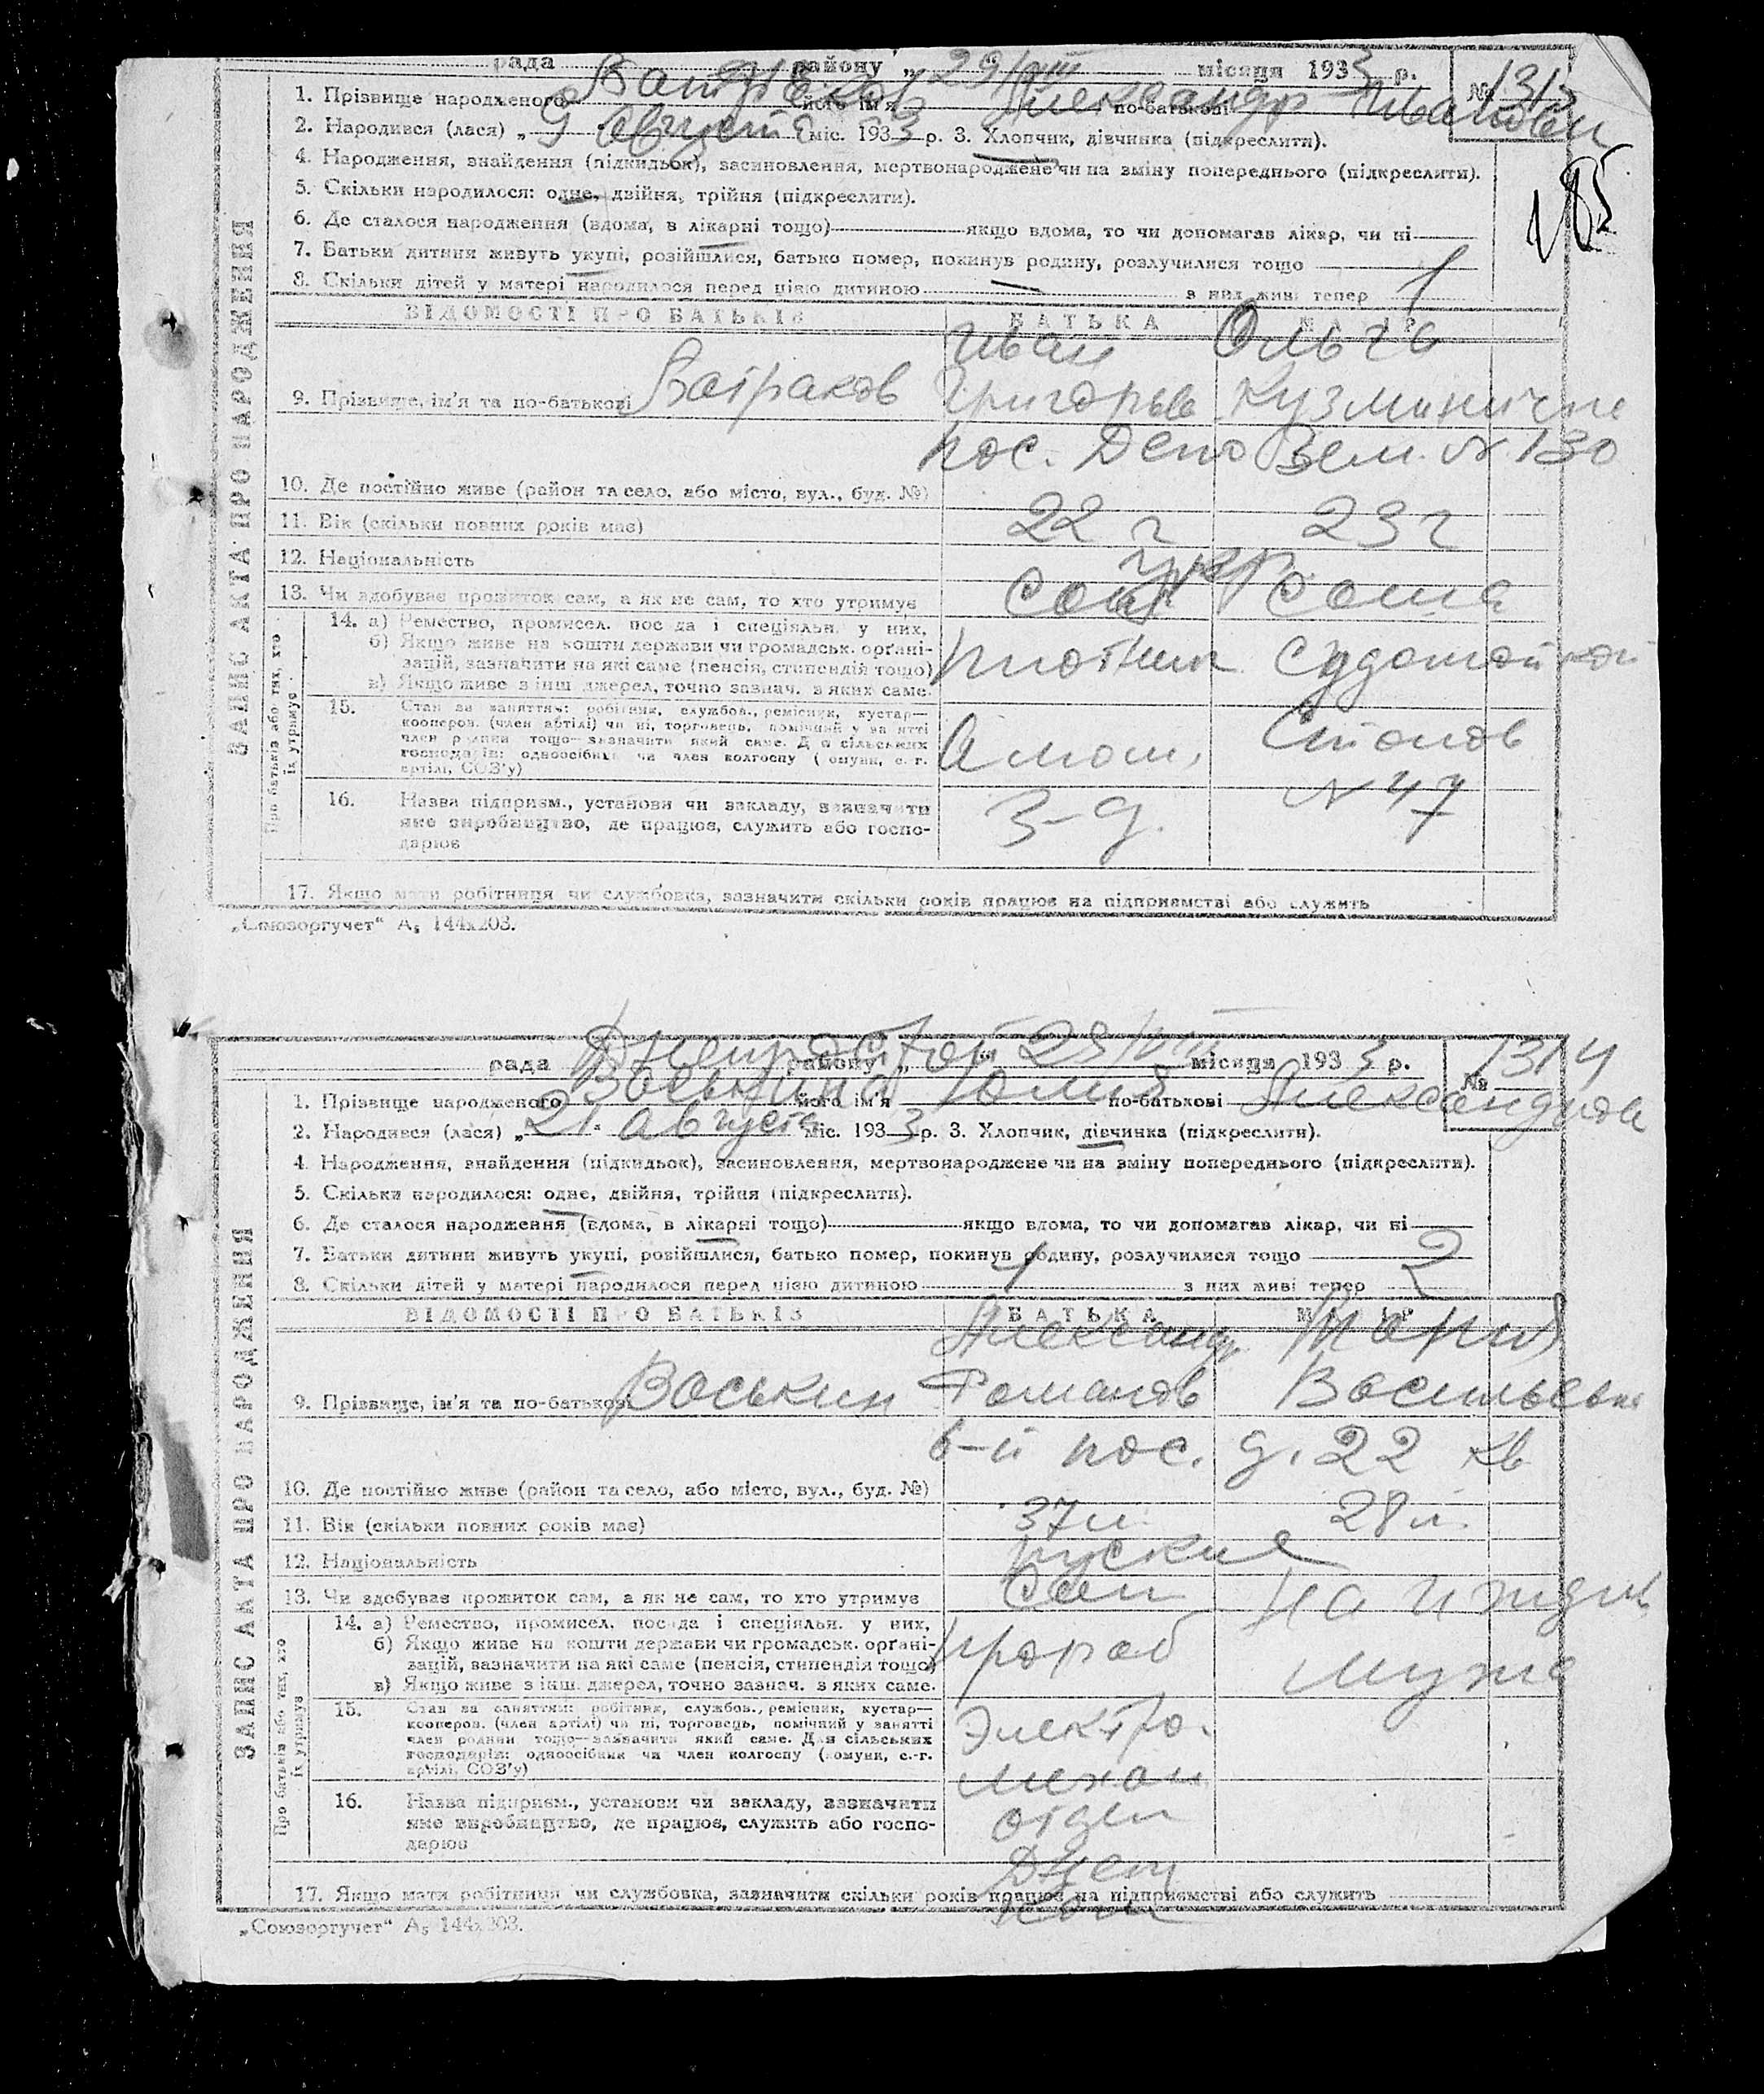 рада району „ 29/VIII місяця 1933 р.
№ 1313
1. Прізвище народженого його ім'я Александр по-батькові Иванович
2. Народився (лася) „ 9 августа міс. 1933 р. 3. Хлопчик, дівчинка (підкреслити).
185
4. Народження, знайдення (підкидьок), засиновлення, мертвонароджене чи на зміну попереднього (підкреслити).
5. Скільки народилося: одне, двійня, трійня (підкреслити).
6. Де сталося народження (вдома, в лікарні тощо) якщо вдома, то чи допомагав лікар, чи ні
7. Батьки дитини живуть укупі, розійшлися, батько помер, покинув родину, розлучилися тощо
8. Скільки дітей у матері народилося перед цією дитиною — з них живі тепер 1
ЗАПИС АКТА ПРО НАРОДЖЕННЯ
ВІДОМОСТІ ПРО БАТЬКІВ БАТЬКА МАТІР
Иван Ольга
9. Прізвище, ім'я та по-батькові Батраков Григорьев Кузминична
пос. Депо Зем. № 130
10. Де постійно живе (район та село, або місто, вул., буд. №)
11. Вік (скільки повних років має) 22 г 23 г
12. Національність укр.
13. Чи здобуває прожиток сам, а як не сам, то хто утримує сам сама
Про батьків або тих, хто їх утримує
14. а) Ремество, промисел. посада і спеціяльн. у них.
б) Якщо живе на кошти держави чи громадськ. органі-
зацій, зазначити на які саме (пенсія, стипендія тощо) плотник судомойкой
в) Якщо живе з інш. джерел, точно зазнач. з яких саме.
15. Стан за заняттям: робітник, службов., ремісник, кустар—
кооперов. (член артілі) чи ні, торговець, помічний у занятті
член родини тощо—зазначити який саме. Для сільських
господарів: одноосібник чи член колгоспу (комуни, с.-г.
артілі, СОЗ'у)
Алюм. Столов
16. Назва підприєм., установи чи закладу, зазначити
яке виробництво, де працює, служить або госпо-
дарює
З-д. № 47
17. Якщо мати робітниця чи службовка, зазначити скільки років працює на підприємстві або служить
„Союзоргучет“ А₅ 144х203.
рада Днепрострой району „ 29/VIII місяця 1933 р.
№ 1314
1. Прізвище народженого Воськина його ім'я Юлия по-батькові Александров
2. Народився (лася) „ 21 “ августа міс. 1933 р. 3. Хлопчик, дівчинка (підкреслити).
4. Народження, знайдення (підкидьок), засиновлення, мертвонароджене чи на зміну попереднього (підкреслити).
5. Скільки народилося: одне, двійня, трійня (підкреслити).
6. Де сталося народження (вдома, в лікарні тощо) якщо вдома, то чи допомагав лікар, чи ні
7. Батьки дитини живуть укупі, розійшлися, батько помер, покинув родину, розлучилися тощо
8. Скільки дітей у матері народилося перед цією дитиною 1 з них живі тепер 2
ЗАПИС АКТА ПРО НАРОДЖЕННЯ
ВІДОМОСТІ ПРО БАТЬКІВ БАТЬКА МАТІР
Александр Мария
9. Прізвище, ім'я та по-батькові Воськин Романов Васильевна
6-й пос. д. 22 кв
10. Де постійно живе (район та село, або місто, вул., буд. №)
11. Вік (скільки повних років має) 37 л. 28 л.
12. Національність руские
13. Чи здобуває прожиток сам, а як не сам, то хто утримує Сам на иждив
Про батьків або тих, хто їх утримує
14. а) Ремество, промисел. посада і спеціяльн. у них.
б) Якщо живе на кошти держави чи громадськ. органі-
зацій, зазначити на які саме (пенсія, стипендія тощо) прораб мужа
в) Якщо живе з інш. джерел, точно зазнач. з яких саме.
15. Стан за заняттям: робітник, службов., ремісник, кустар—
кооперов. (член артілі) чи ні, торговець, помічний у занятті
член родини тощо—зазначити який саме. Для сільських
господарів: одноосібник чи член колгоспу (комуни, с.-г.
артілі, СОЗ'у)
Электро-
механ
16. Назва підприєм., установи чи закладу, зазначити
яке виробництво, де працює, служить або госпо-
дарює
отдел
17. Якщо мати робітниця чи службовка, зазначити скільки років працює на підприємстві або служить
„Союзоргучет“ А₅ 144х203.